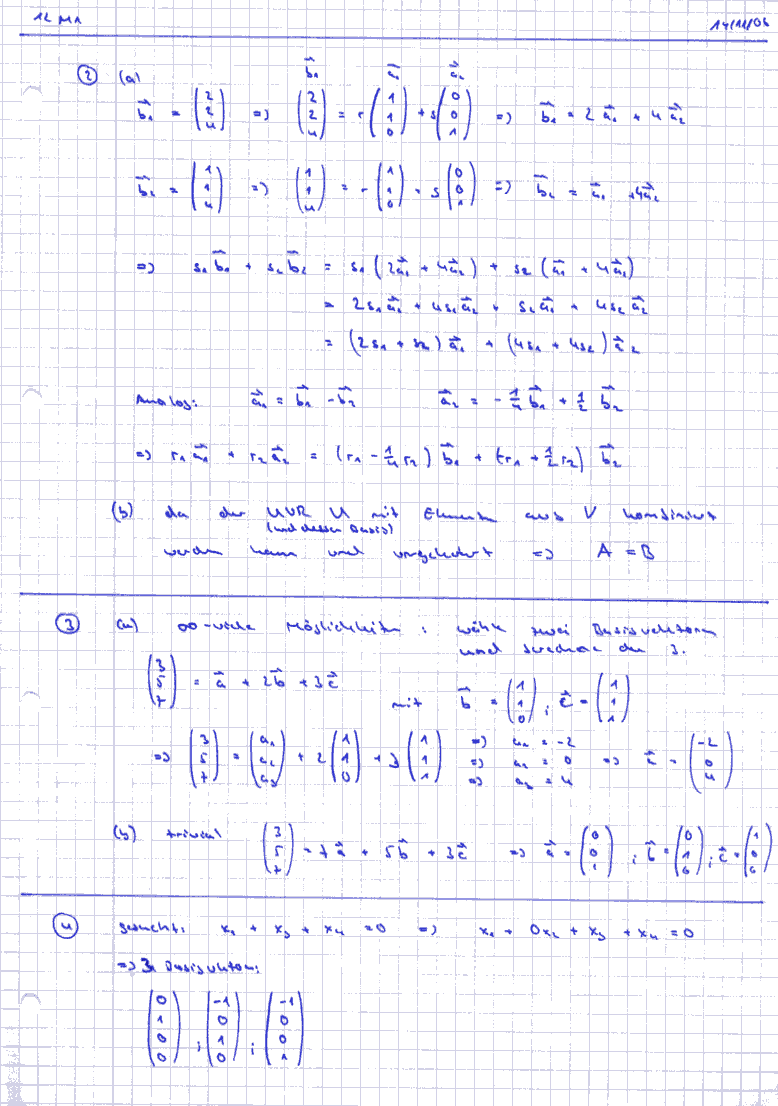 12 M1 14/11/06
② (a) \vec{b_1} \vec{a_1} \vec{a_2}
\vec{b_1} = (2 2 4) => (2 2 4) = r (1 1 0) + s (0 0 1) => \vec{b_1} = 2 \vec{a_1} + 4 \vec{a_2}
\vec{b_2} = (1 1 4) => (1 1 4) = r (1 1 0) + s (0 0 1) => \vec{b_2} = \vec{a_1} + 4\vec{a_2}
=> s_1 \vec{b_1} + s_2 \vec{b_2} = s_1 (2\vec{a_1} + 4\vec{a_2}) + s_2 (\vec{a_1} + 4\vec{a_2})
= 2s_1 \vec{a_1} + 4s_1 \vec{a_2} + s_2 \vec{a_1} + 4s_2 \vec{a_2}
= (2s_1 + s_2) \vec{a_1} + (4s_1 + 4s_2) \vec{a_2}
Analog: \vec{a_1} = \vec{b_1} - \vec{b_2} \vec{a_2} = - 1/4 \vec{b_1} + 1/2 \vec{b_2}
=> r_1 \vec{a_1} + r_2 \vec{a_2} = (r_1 - 1/4 r_2) \vec{b_1} + (-r_1 + 1/2 r_2) \vec{b_2}
(b) da der UVR U mit Elementen aus V kombiniert
(und dessen Basis)
werden kann und umgekehrt => A = B
③ (a) ∞-viele Möglichkeiten : wähle zwei Basisvektoren
und berechne den 3.
(3 5 7) = \vec{a} + 2\vec{b} + 3\vec{c} mit \vec{b} = (1 1 0) ; \vec{c} = (1 1 1)
=> (3 5 7) = (a_1 a_2 a_3) + 2 (1 1 0) + 3 (1 1 1) => a_1 = -2 => a_2 = 0 => a_3 = 4 => \vec{c} = (-2 0 4)
(b) trivial (3 5 7) = 7\vec{a} + 5\vec{b} + 3\vec{c} => \vec{a} = (0 0 1) ; \vec{b} = (0 1 0) ; \vec{c} = (1 0 0)
④ gesucht: x_1 + x_3 + x_4 = 0 => x_1 + 0x_2 + x_3 + x_4 = 0
=> 3 Basisvektoren:
(0 1 0 0) ; (-1 0 1 0) ; (-1 0 0 1)